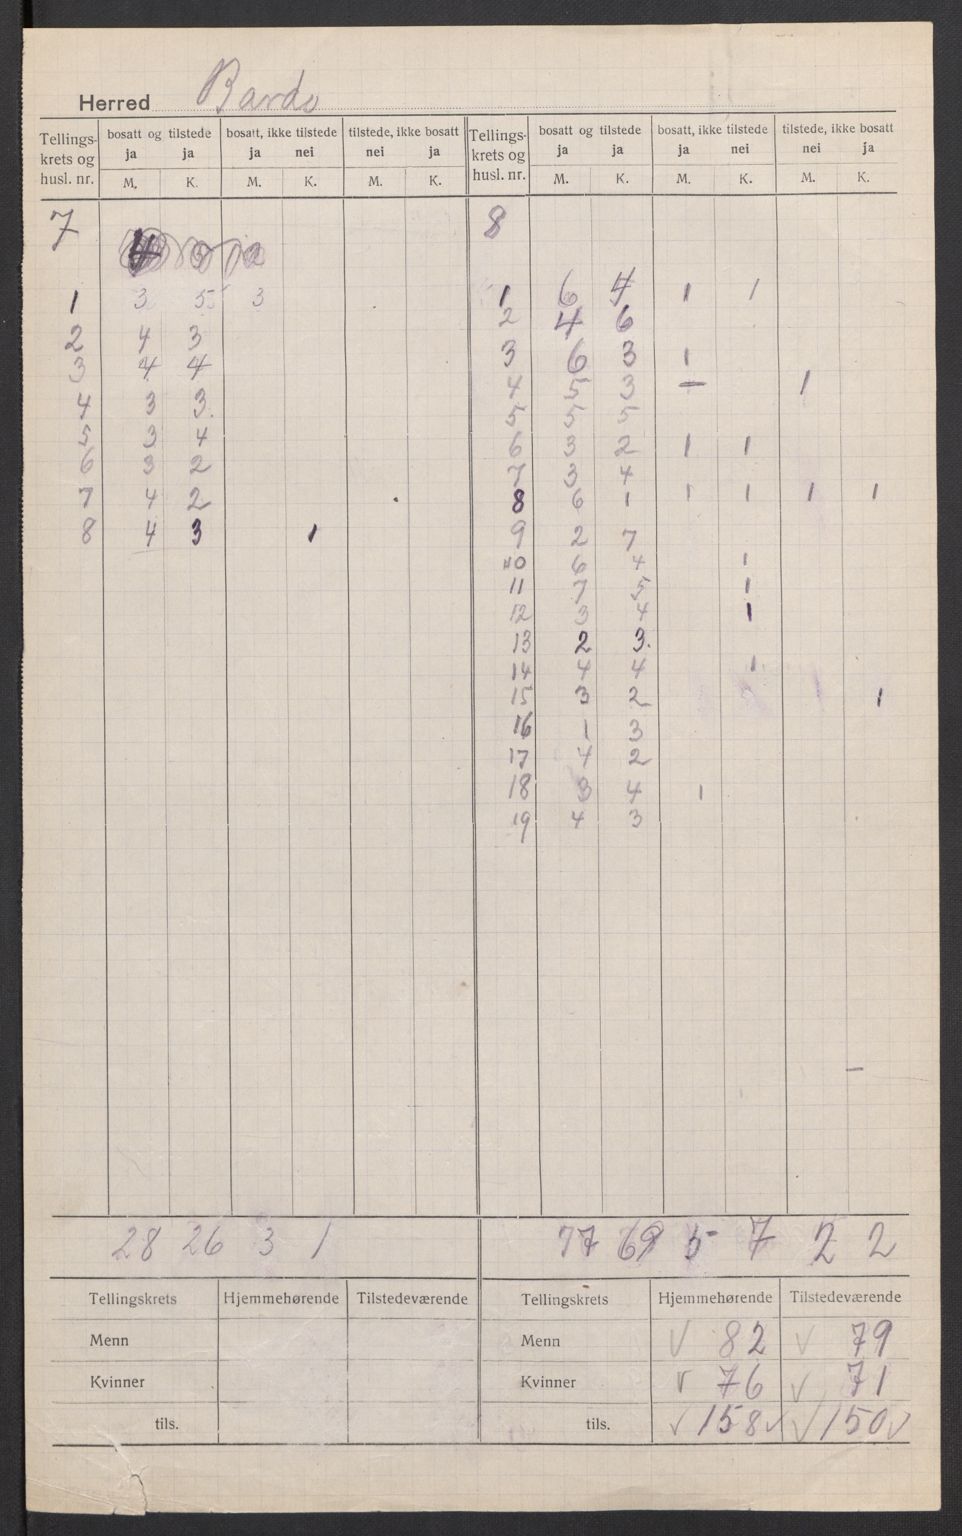 Herred Bardo
Tellings-krets og husl. nr. | bosatt og tilstede ja ja M. K. | bosatt, ikke tilstede ja nei M. K. | tilstede, ikke bosatt nei ja M. K. | Tellings-krets og husl. nr. | bosatt og tilstede ja ja M. K. | bosatt, ikke tilstede ja nei M. K. | tilstede, ikke bosatt nei ja M. K.
7 | | | | | | | 8
4
1 | 3 | 5 | 3 | | | | 1 | 6 | 4 | 1 | 1
2 | 4 | 3 | | | | | 2 | 4 | 6
3 | 4 | 4 | | | | | 3 | 6 | 3 | 1
4 | 3 | 3. | | | | | 4 | 5 | 3 | – | | 1
5 | 3 | 4 | | | | | 5 | 5 | 5
6 | 3 | 2 | | | | | 6 | 3 | 2 | 1 | 1
7 | 4 | 2 | | | | | 7 | 3 | 4
8 | 4 | 3 | | 1 | | | 8 | 6 | 1 | 1 | 1 | 1 | 1
9 | 2 | 7
10 | 6 | 4 | | 1
11 | 7 | 5 | | 1
12 | 3 | 4 | | 1
13 | 2 | 3.
14 | 4 | 4 | | 1
15 | 3 | 2 | | | | 1
16 | 1 | 3
17 | 4 | 2
18 | 3 | 4 | 1
19 | 4 | 3
28 | 26 | 3 | 1 | | | | 77 | 69 | 5 | 7 | 2 | 2
Tellingskrets | Hjemmehørende | Tilstedeværende | Tellingskrets | Hjemmehørende | Tilstedeværende
Menn | | | Menn | √ 82 | √ 79
Kvinner | | | Kvinner | √ 76 | √ 71
tils. | | | tils. | √ 158 √ | √ 150 √